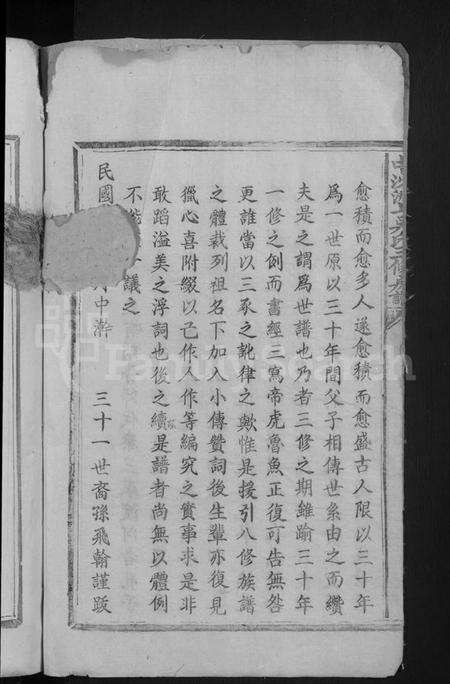 愈積而愈多人遂愈積而愈盛古人限以三十年
為一世原以三十年間父子相傳世系由之而纘
夫是之謂為世譜也乃者三修之期雖踰三十年
一修之例而書經三寫帝虎魯魚正復可告無咎
更誰當以三豕之訛律之歟惟是援引八修族譜
之體裁列祖名下加入小傳贊詞後生輩亦復見
獵心喜附綴以己作人作等編究之實事求是非
敢蹈溢美之浮詞也後之續是譜者尚無以體例
不能 議之
民國 中澣
三十一世裔孫飛翰謹跋
FamilySearch